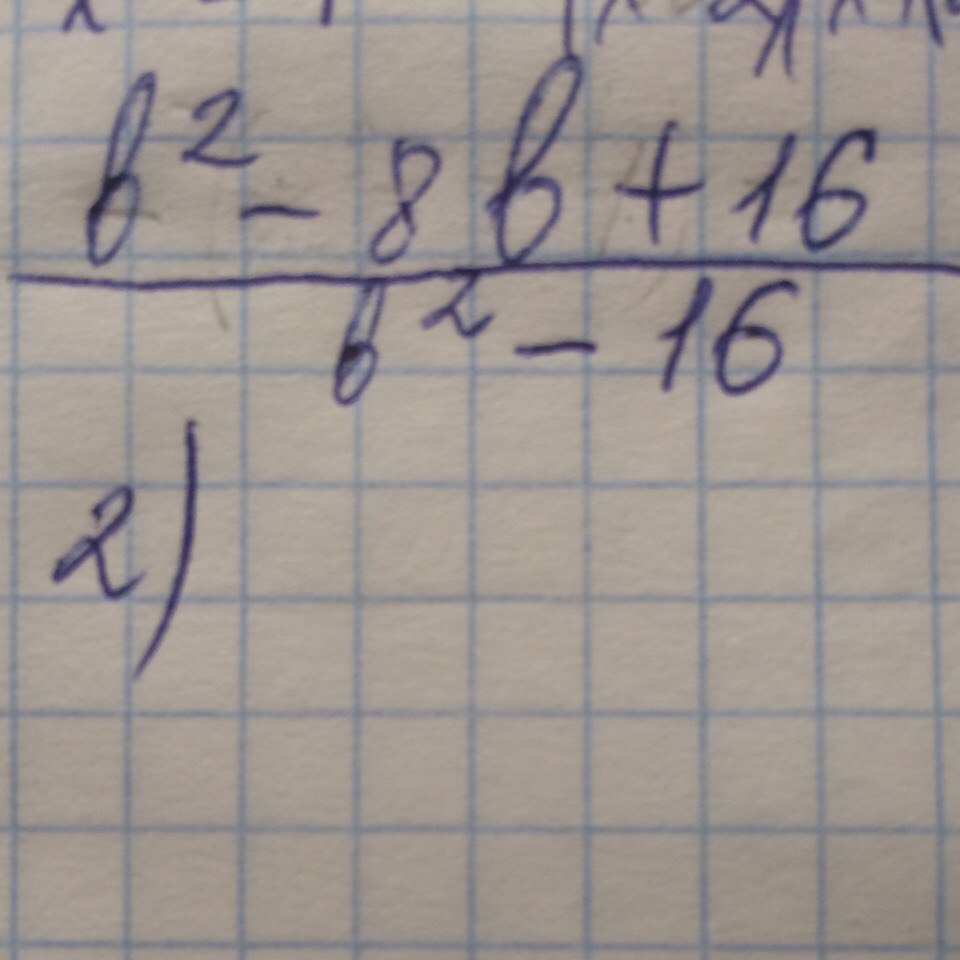 b² - 8b + 16
b² - 16
2)